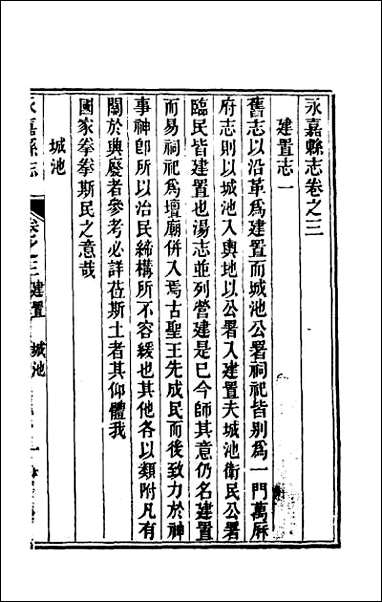 永嘉縣志卷之三
建置志一
舊志以沿革爲建置而城池公署祠祀皆别爲一門萬厤
府志則以城池入輿地以公署入建置夫城池衛民公署
臨民皆建置也湯志並列營建是巳今師其意仍名建置
而易祠祀爲壇廟併入焉古聖王先成民而後致力於神
事神卽所以治民締構所不容緩也其他各以類附凡有
關於興廢者參考必詳莅斯土者其仰體我
國家拳拳斯民之意哉
城池
永嘉縣志
卷之三建置
城池
一